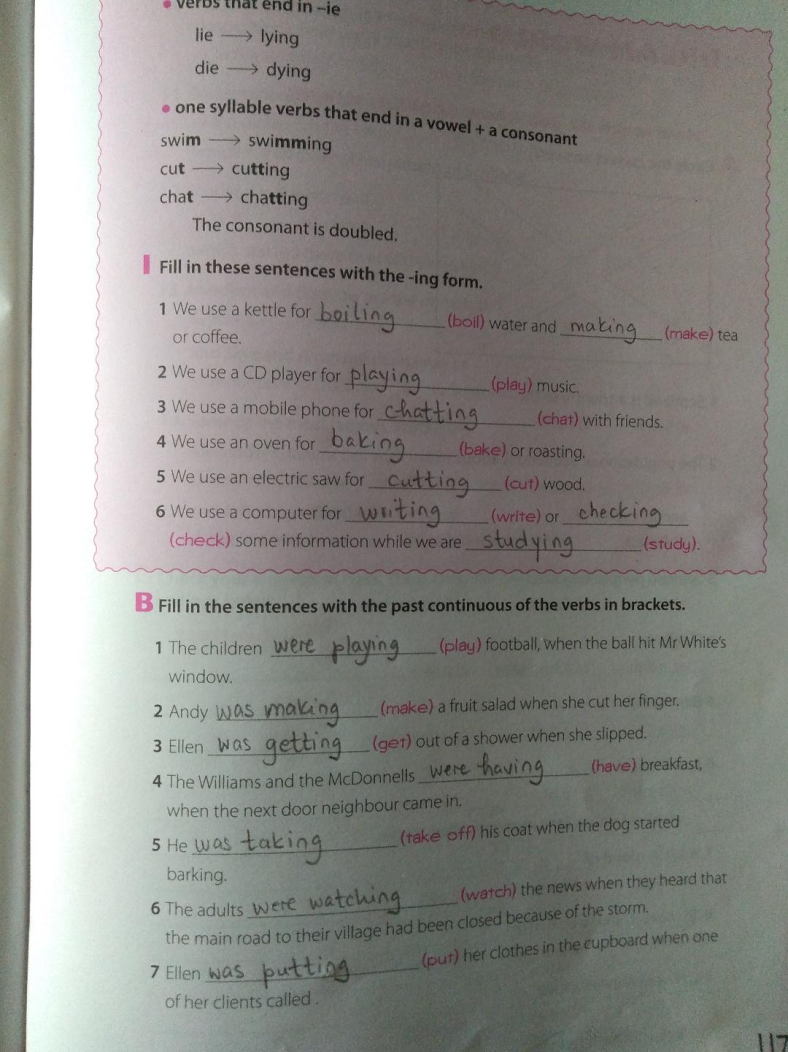 • verbs that end in –ie
lie → lying
die → dying
• one syllable verbs that end in a vowel + a consonant
swim → swimming
cut → cutting
chat → chatting
The consonant is doubled.
I Fill in these sentences with the -ing form.
1 We use a kettle for boiling (boil) water and making (make) tea
or coffee.
2 We use a CD player for playing (play) music.
3 We use a mobile phone for chatting (chat) with friends.
4 We use an oven for baking (bake) or roasting.
5 We use an electric saw for cutting (cut) wood.
6 We use a computer for writing (write) or checking
(check) some information while we are studying (study).
B Fill in the sentences with the past continuous of the verbs in brackets.
1 The children were playing (play) football, when the ball hit Mr White's
window.
2 Andy was making (make) a fruit salad when she cut her finger.
3 Ellen was getting (get) out of a shower when she slipped.
4 The Williams and the McDonnells were having (have) breakfast,
when the next door neighbour came in.
5 He was taking (take off) his coat when the dog started
barking.
6 The adults were watching (watch) the news when they heard that
the main road to their village had been closed because of the storm.
7 Ellen was putting (put) her clothes in the cupboard when one
of her clients called .
117